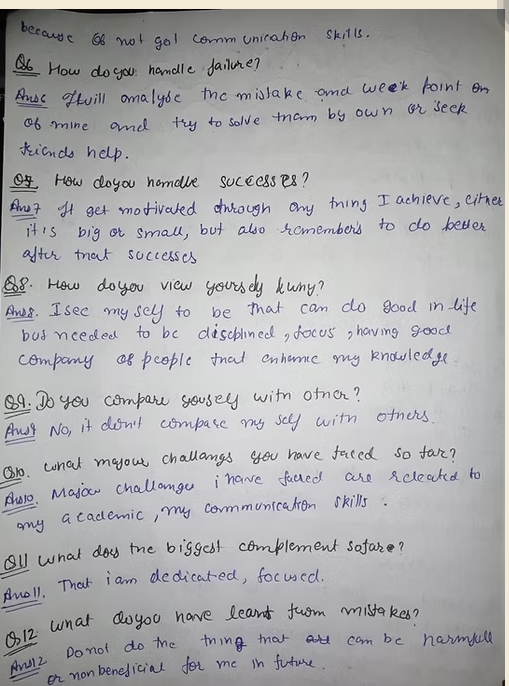 because of not got communication skills.
Q6 How do you handle failure?
Ans6 It will analyse the mistake and week point on
of mine and try to solve tham by own or seek
friends help.
Q7 How do you handle successes?
Ans7 It get motivated through any thing I achieve, either
it is big or small, but also remembers to do better
after that successes
Q8. How do you view yoursely & why?
Ans8. I see my self to be that can do good in life
but needed to be disciplined, focus, having good
company of people that enhance my knowledge.
Q9. Do you compare youself with other?
Ans9 No, it don't compare my self with others.
Q10. what majour challangs you have faced so far?
Ans10. Major challange i have faced are releated to
my academic, my communication skills.
Q11 What does the biggest complement sofare?
Ans11. That i am dedicated, focused.
Q12 what do you have learnt from mistakes?
Ans12 Do not do the thing that can be harmfull
or non beneficial for me in future.